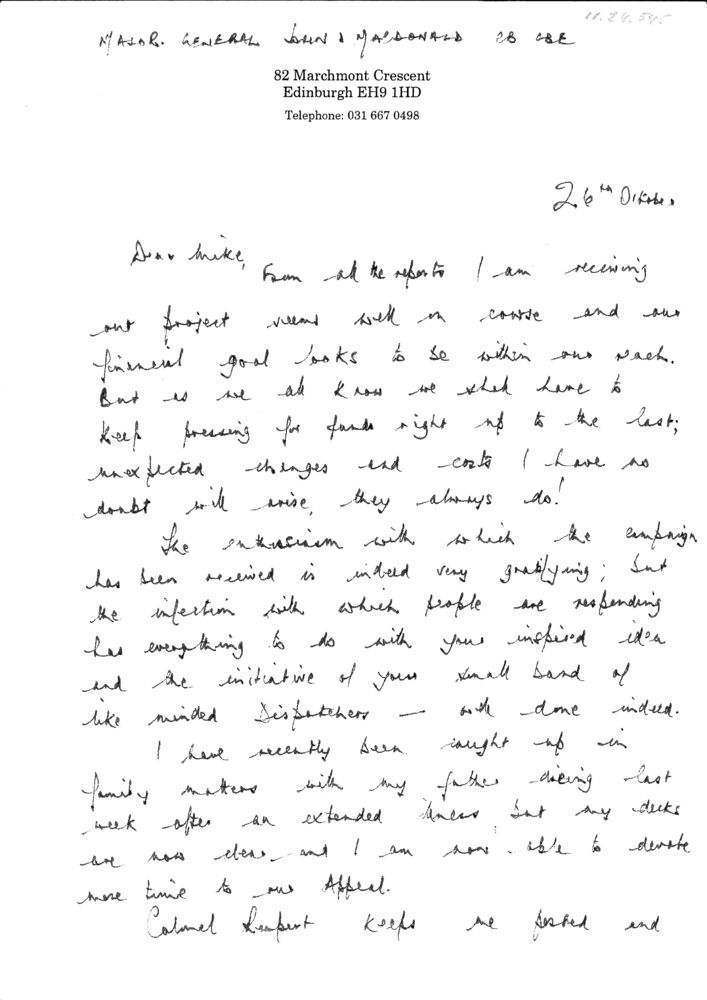 MAJOR. GENERAL JOHN D MACDONALD CB CBE
82 Marchmont Crescent
Edinburgh EH9 1HD
Telephone: 031 667 0498
26th October
Dear Mike,
From all the reports I am receiving
our project seems well on course and our
financial goal looks to be within our reach.
But as we all know we shall have to
keep pressing for funds right up to the last;
unexpected changes and costs I have no
doubt will arise, they always do!
The enthusiasm with which the campaign
has been received is indeed very gratifying; but
the infection with which people are responding
has everything to do with your inspired idea
and the initiative of your small band of
like minded Dispatchers — well done indeed.
I have recently been caught up in
family matters with my father dieing last
week after an extended illness but my decks
are now clear and I am now able to devote
more time to our Appeal.
Colonel keeps me posted and